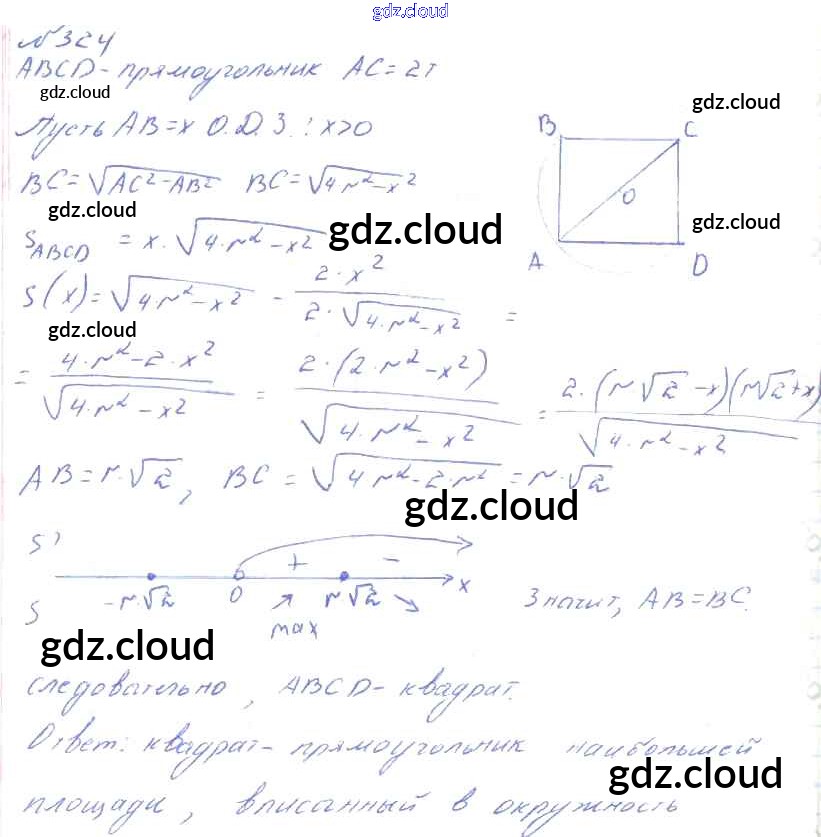 gdz.cloud
№324
ABCD - прямоугольник AC = 2r
gdz.cloud
gdz.cloud
Пусть AB = x О.Д.З.: x>0
B C
BC = √(AC² - AB²) BC = √(4·r² - x²)
O
gdz.cloud
gdz.cloud
S_ABCD = x·√(4·r² - x²)
gdz.cloud
A D
S'(x) = √(4·r² - x²) - (2·x²)/(2·√(4·r² - x²)) =
gdz.cloud
= (4·r² - 2·x²)/√(4·r² - x²) = (2·(2·r² - x²))/√(4·r² - x²) = (2·(r√2 - x)(r√2 + x))/√(4·r² - x²)
AB = r·√2, BC = √(4r² - 2·r²) = r·√2
gdz.cloud
S' + -
S -r·√2 0 r√2 x
max
Значит, AB = BC.
gdz.cloud
следовательно, ABCD - квадрат.
Ответ: квадрат - прямоугольник наибольшей
gdz.cloud
площади, вписанный в окружность